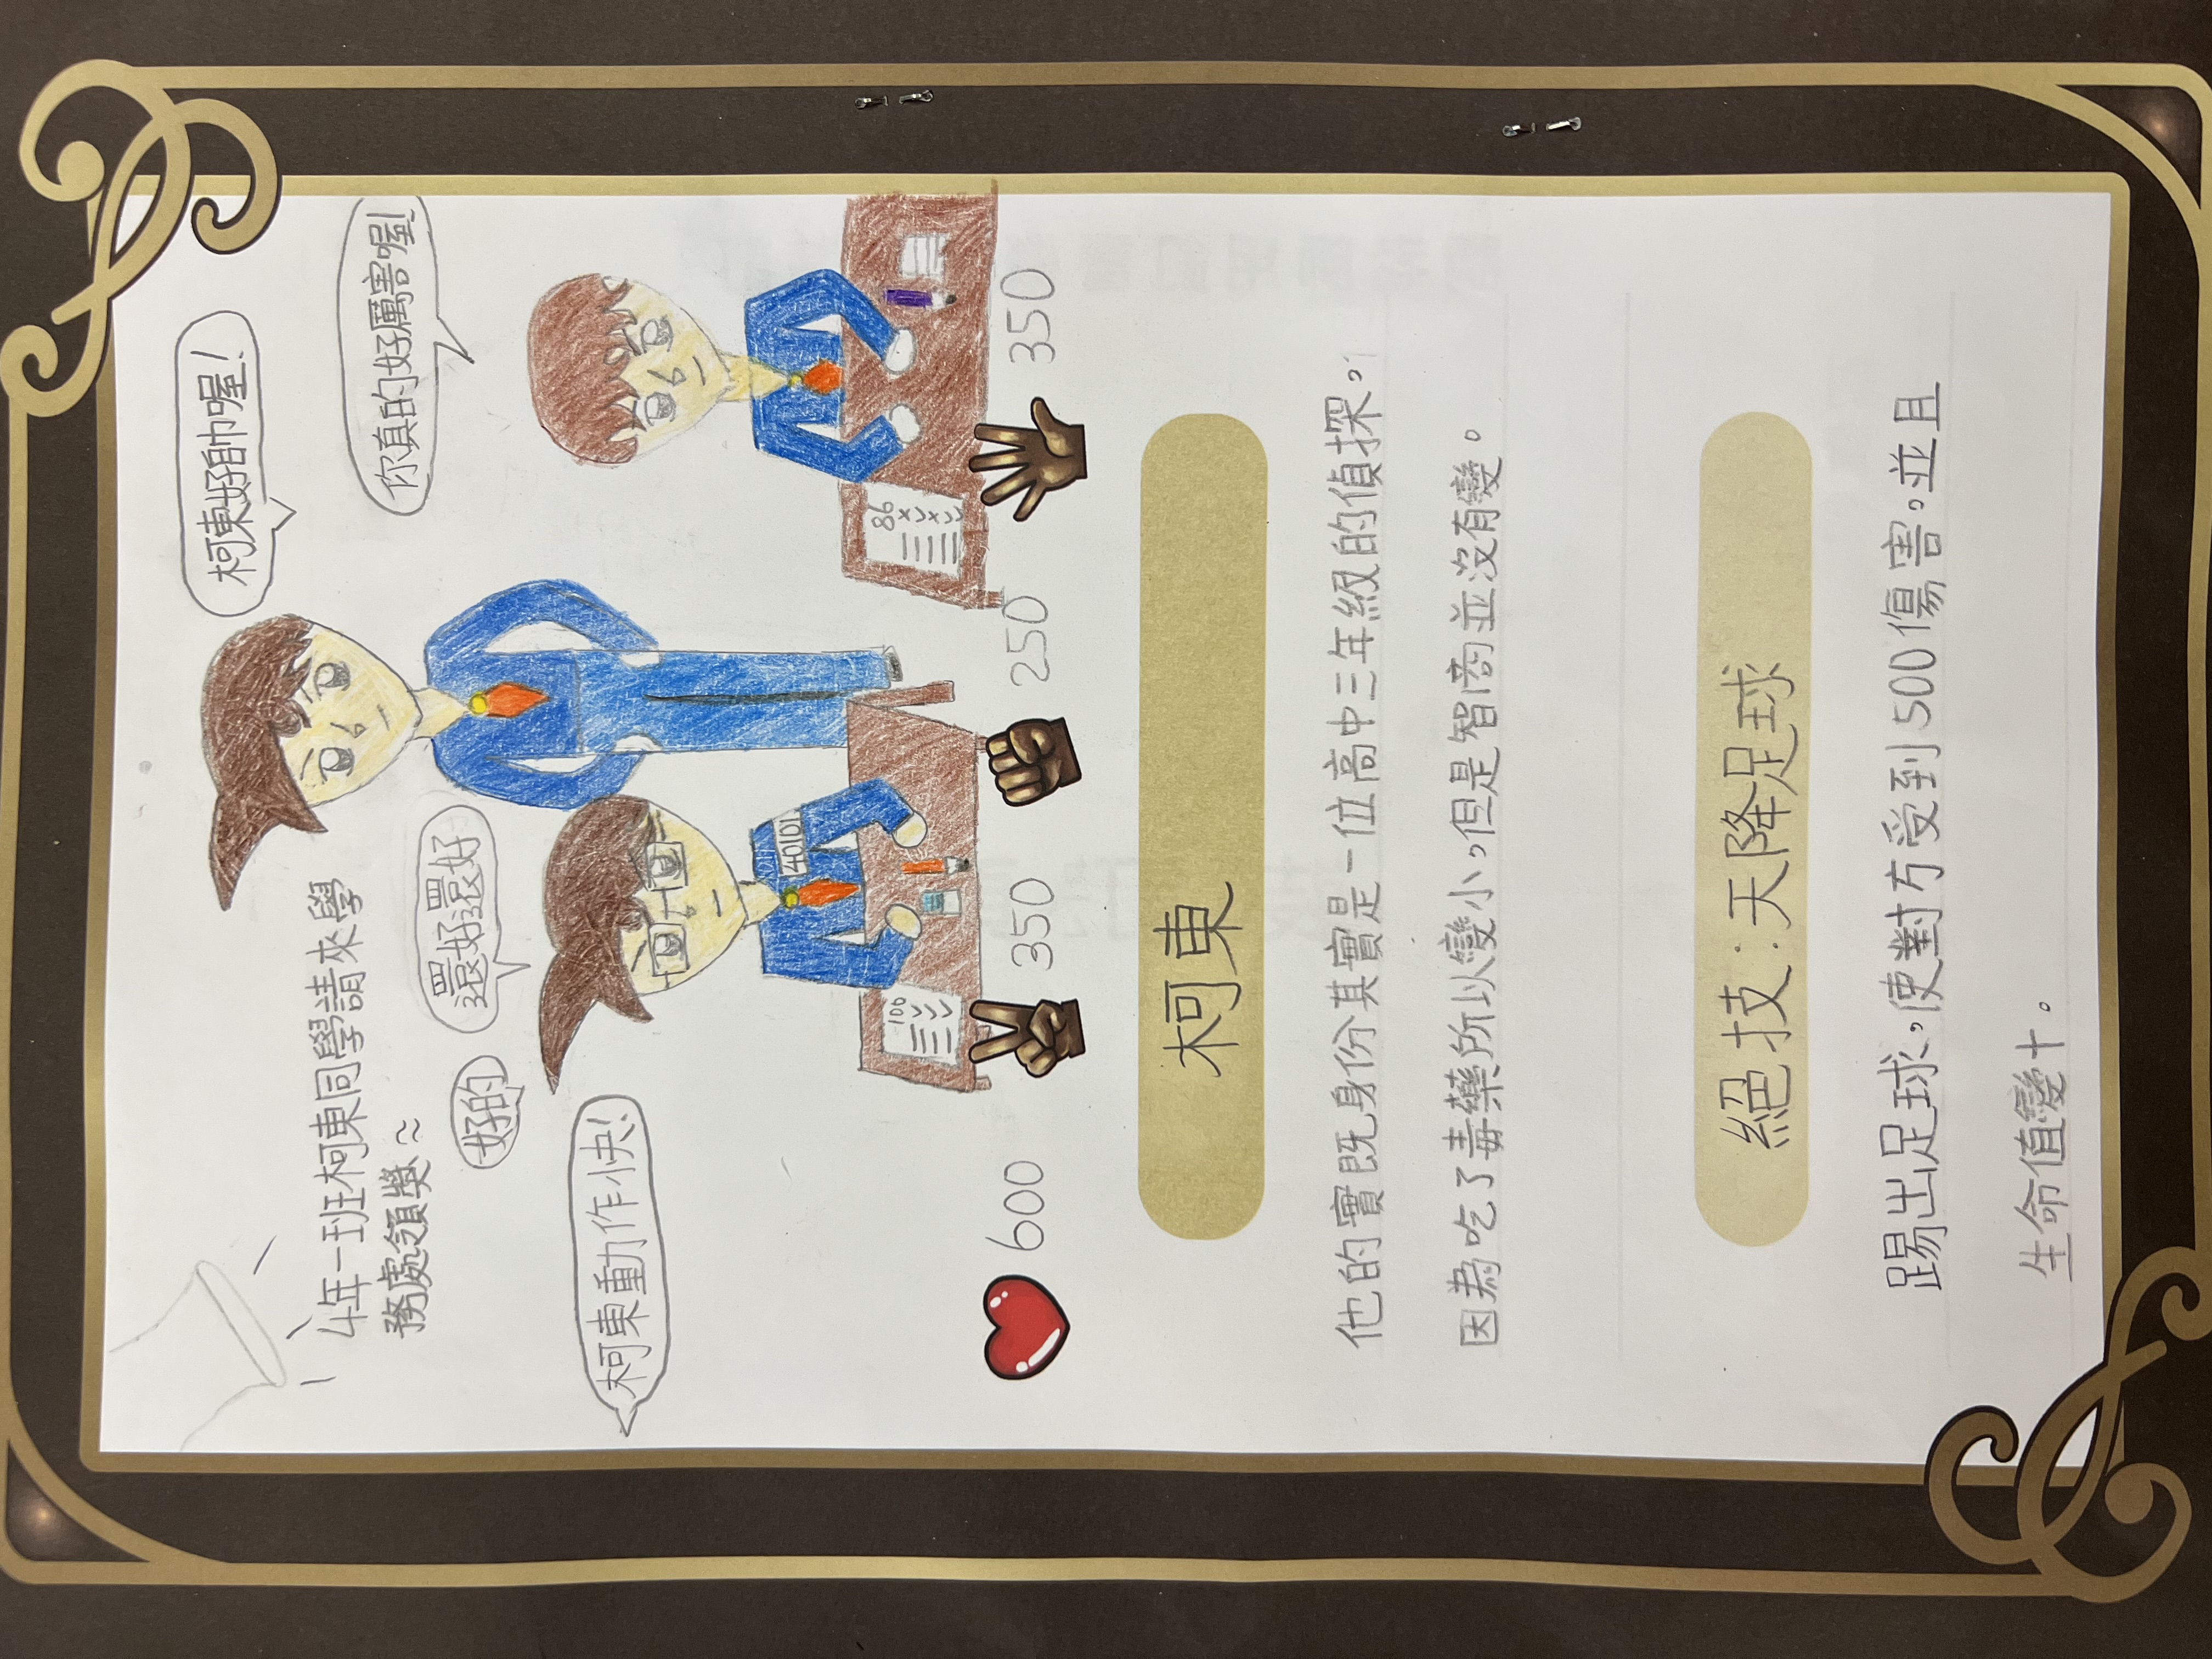 柯東好帥喔!
你真的好厲害喔!
4年一班柯東同學請來學
務處領獎~
還好還好
好的
柯東動作快!
40101
100
86
600
350
250
350
柯東
他的實既身份其實是一位高中三年級的偵探,
因為吃了毒藥所以變小,但是智商並沒有變。
絕技:天降足球
踢出足球,使對方受到500傷害。並且
生命值變十。